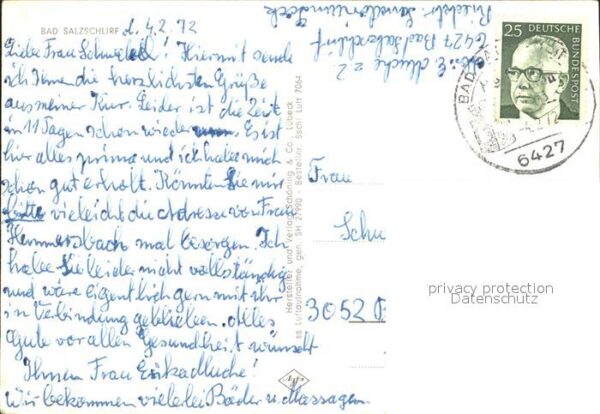 BAD SALZSCHLIRF d. 4.2.72
Liebe Frau ! Hiermit sende
ich Ihnen die herzlichsten Grüße
aus meiner Kur. Leider ist die Zeit
in 11 Tagen schon wieder um. Es ist
hier alles prima und ich habe mich
schon gut erholt. Könnten Sie mir
bitte vieleicht die Adresse von Frau
Hemmersbach mal besorgen. Ich
habe Sie leider nicht vollständig
und wäre eigentlich gern mit ihr
in Verbindung geblieben. Alles
Gute vor allen Gesundheit wünscht
Ihnen Frau
Wir bekommen vielerlei Bäder u. Massagen.
Hersteller und Verlag Schöning & Co., Lübeck
ss Luftaufnahme, gen. SH 27990 - Bestellnr. Sschl Luft 7064
Agfa
6427 Bad Salzschlirf
25
DEUTSCHE
BUNDESPOST
BAD
-4.2.72
6427
Frau
Schu
3052
privacy protection
Datenschutz